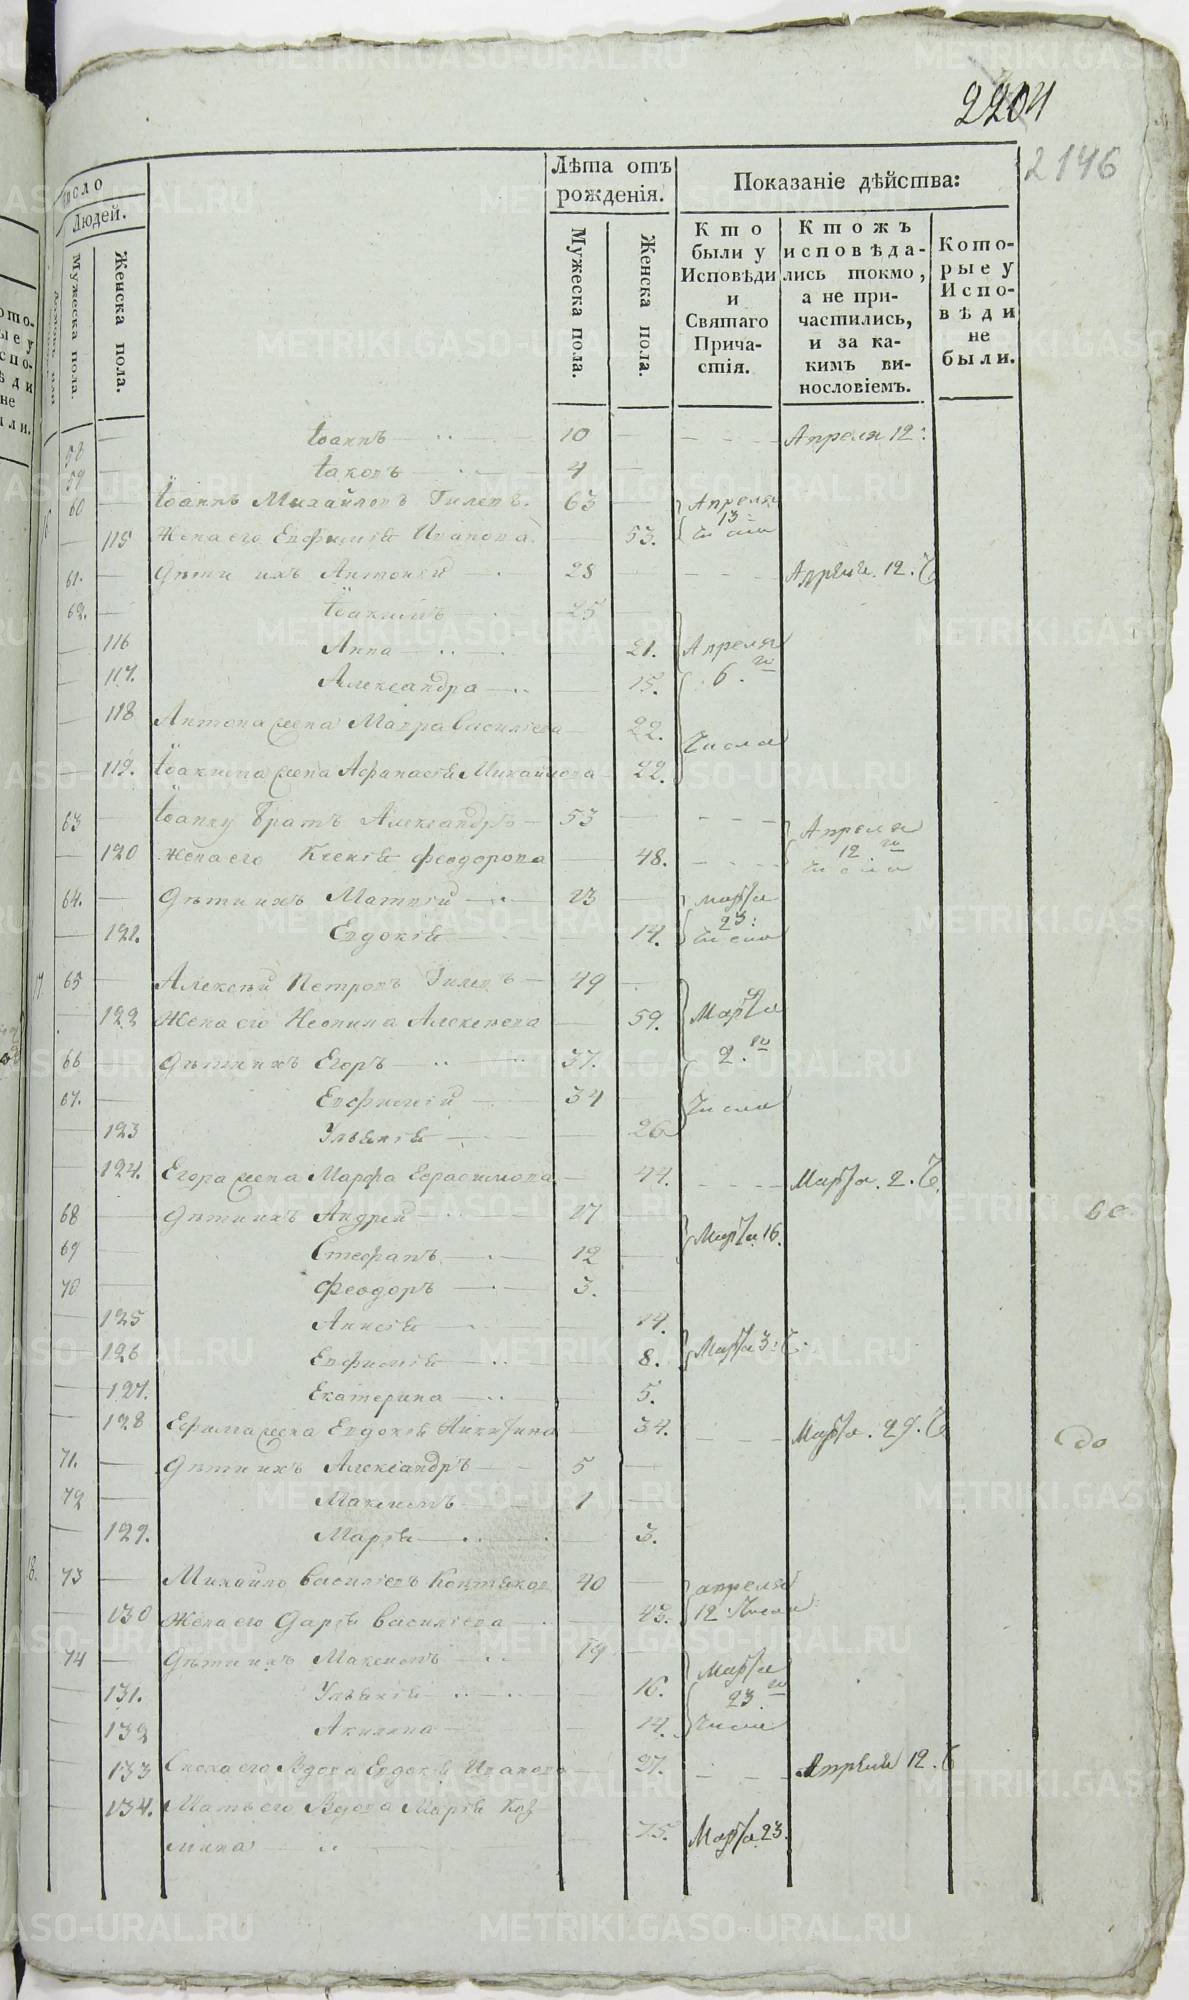 2204
2146
Число
Людей.
Мужеска пола.
Женска пола.
Лѣта отъ рожденія.
Мужеска пола.
Женска пола.
Показаніе дѣйства:
Кто были у Исповѣди и Святаго Прича- стія.
Ктожъ исповѣда- лись токмо, а не при- частились, и за ка- кимъ ви- нословіемъ.
Кото- рые у Испо- вѣди не были.
58 Іоаннъ 10 Апреля 12:
59 Іаковъ 4
60 Іоаннъ Михайловъ Гилевъ. 63 Апреля 13
115 Жена его Евфимія Иванова. 53. числа
61. Дѣти ихъ Антоній 28 Апреля. 12. Ч
62. Іоакимъ 25
116 Анна 21. Апреля
117. Александра 15. 6. го
118 Антона жена Мавра Васильева 22. Числа
119. Іоакима жена Афанасія Михайлова 22.
63 Іоанну Братъ Александръ 53 Апреля
120 Жена его Ксенія Феодорова 48. 12. го числа
64. Дѣти ихъ Матвей 23 Марта
121. Евдокія 14. 23: числа
17. 65 Алексѣй Петровъ Гилевъ 49
122 Жена его Неонила Алексѣева 59. Марта
66 Дѣти ихъ Егоръ 37. 2. го
67. Евфимій 34 Числа
123 Ульянія 26
124. Егора жена Марфа Герасимова 44. Марта. 2. Ч
68 Дѣти ихъ Андрей 17 Марта 16.
69 Стефанъ 12
70 Феодоръ 3.
125 Анисія 14.
126 Евфимія 8. Марта 3: Ч
127. Екатерина 5.
128 Ефима жена Евдокія Никитина 34. Марта. 29. Ч
до
71. Дѣти ихъ Александръ 5
72 Максимъ 1
129. Марія 3.
18. 73 Михайло Васильевъ Коптяковъ 40 апреля
130 Жена его Дарія Васильева 43. 12 Числа
74 Дѣти ихъ Максимъ 19 Марта
131. Ульянія 16. 23 го
132 Акилина 14. Числа
133 Сноха его Вдова Евдокія Иванова 27. Апреля 12. Ч
134. Мать его Вдова Марія Коз
мина 75. Марта 23.